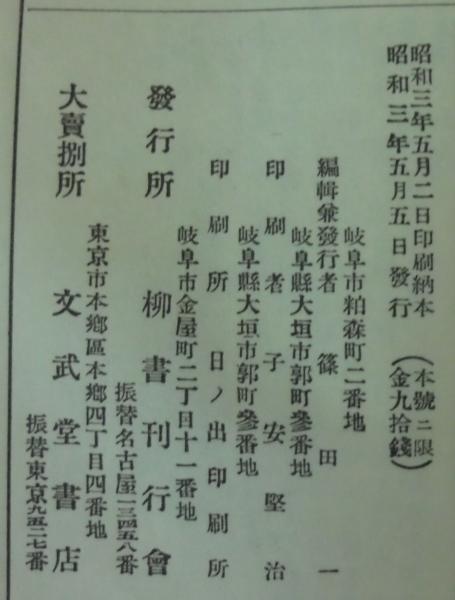 昭和三年五月二日印刷納本
昭和三年五月五日發行
（本號ニ限
金九拾錢）
岐阜市粕森町二番地
編輯兼發行者 篠田一
岐阜縣大垣市郭町參番地
印刷者 子安堅治
岐阜縣大垣市郭町參番地
印刷所 日ノ出印刷所
岐阜市金屋町二丁目十一番地
發行所 柳書刊行會
振替名古屋一三四五八番
東京市本鄕區本鄕四丁目四番地
大賣捌所 文武堂書店
振替東京九五二七番